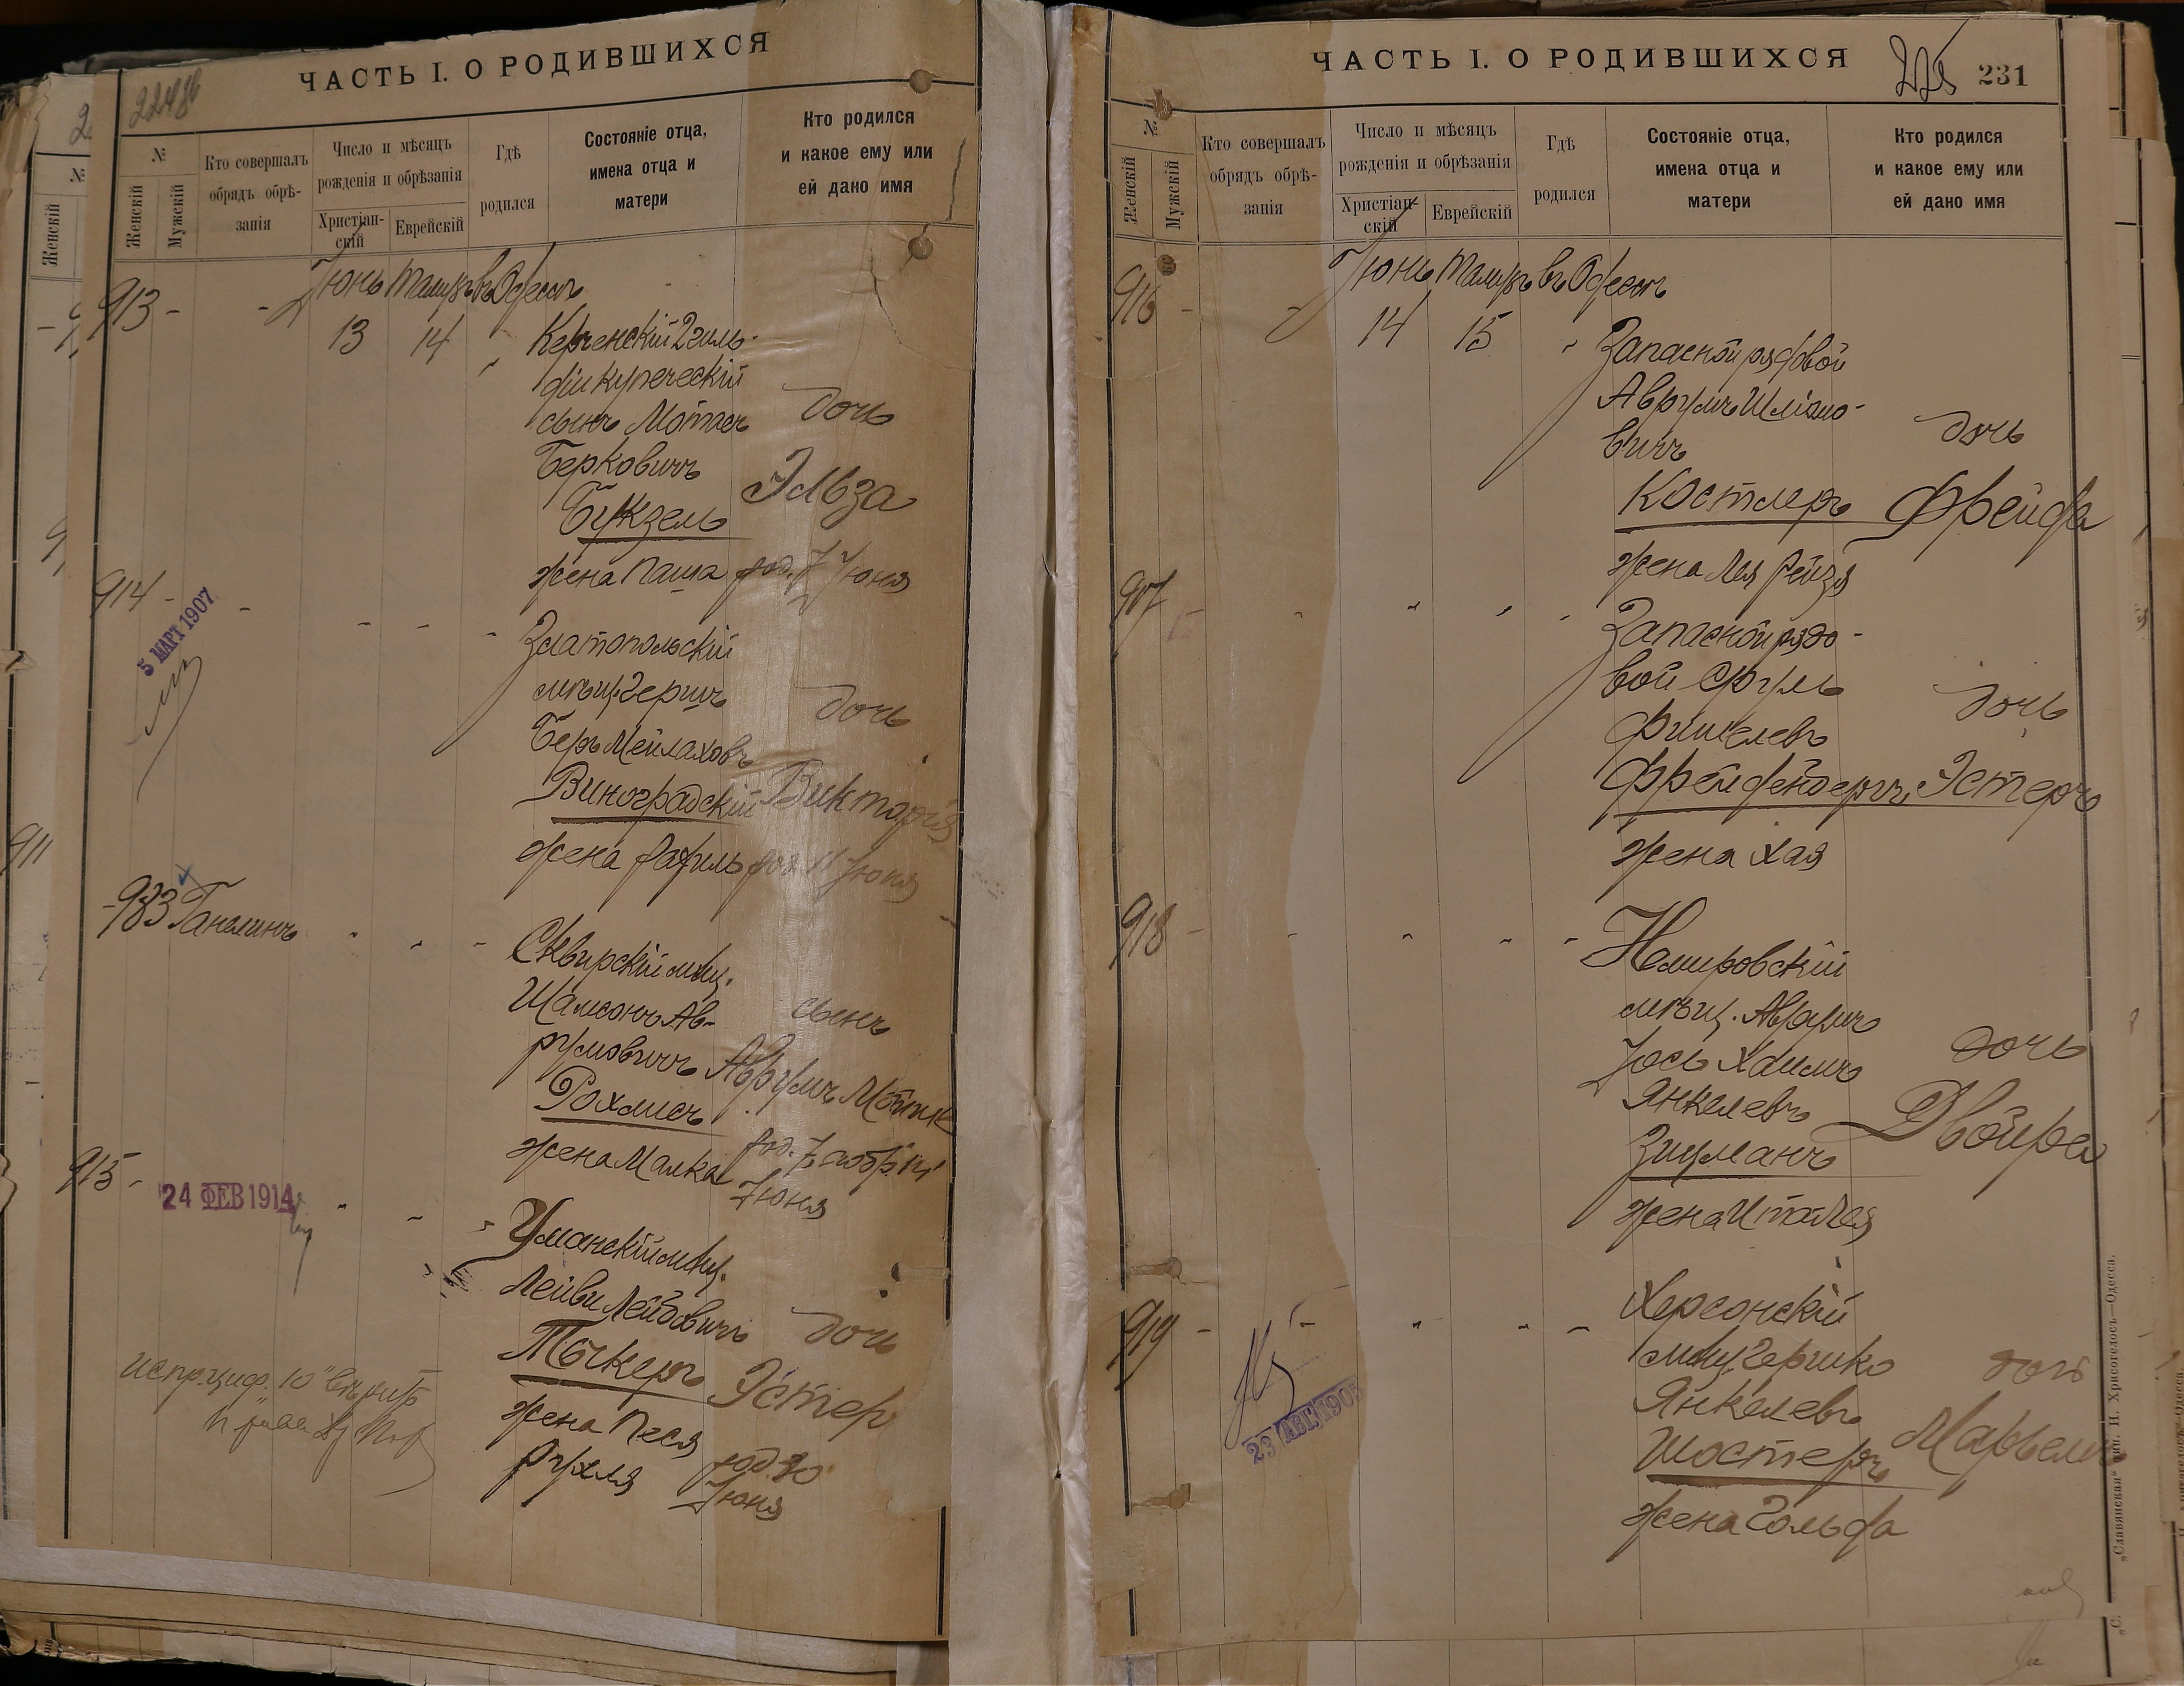 ЧАСТЬ I. О РОДИВШИХСЯ
№
Женскій
Мужскій
Кто совершалъ
обрядъ обрѣ-
занія
Число и мѣсяцъ
рожденія и обрѣзанія
Христіан-
скій
Еврейскій
Гдѣ
родился
Состояніе отца,
имена отца и
матери
Кто родился
и какое ему или
ей дано имя
913 - - Іюнь Тамузъ въ Одессѣ
13 14 " Керченскій 2 гиль-
діи купеческій
сынъ Мотель
Берковичъ
Букзель
жена Паша
дочь
Эльза
род. 7 Іюня
914 - - - - -
5 МАРТ 1907
Златопольскій
мѣщ. Гершъ
Беръ Мейлаховъ
Виноградскій
жена Рахиль
дочь
Викторія
род. 11 Іюня
983 Ганелинъ " " -
Сквирскій мѣщ.
Шамсонъ Ав-
румовичъ
Рохлисъ
жена Малка
сынъ
Аврумъ Мотик
род. 7 обр. 14
Іюня
915 -
24 ФЕВ 1914
Уманскій мѣщ.
Лейви Лейбовичъ
Тычкеръ
жена Песя
Рухля
дочь
Эстер
род. 30
Іюня
испр. циф. 10
ЧАСТЬ I. О РОДИВШИХСЯ
225 231
№
Женскій
Мужскій
Кто совершалъ
обрядъ обрѣ-
занія
Число и мѣсяцъ
рожденія и обрѣзанія
Христіан-
скій
Еврейскій
Гдѣ
родился
Состояніе отца,
имена отца и
матери
Кто родился
и какое ему или
ей дано имя
916 - Іюнь Тамузъ въ Одессѣ
14 15 " Запасной рядовой
Аврумъ Шліомо-
вичъ
Костлеръ
жена Лея Рейзя
дочь
Фрейда
917 - " " " -
Запасной рядо-
вой Сруль
Фишелевъ
Фрейденбергъ
жена Хая
дочь
Эстеръ
918 - - " " -
Немировскій
мѣщ. Аврумъ
Іось Хаимъ
Янкелевъ
Зицманъ
жена Ита Лея
дочь
Двойра
919 - - " " -
23 АВГ 190
Херсонскій
мѣщ. Гершко
Янкелевъ
Шостеръ
жена Гольда
дочь
Марьемъ
„Славянская“ тип. Н. Хрисогелосъ—Одесса.
911